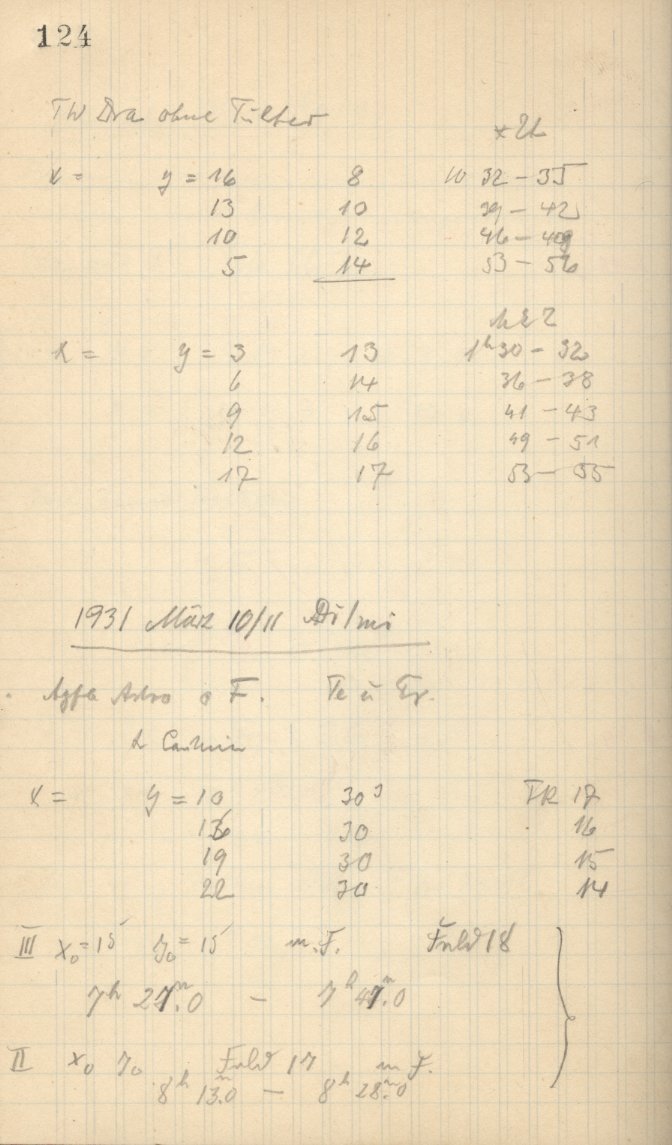 124
TW Dra ohne Filter
x = y = 16 8 10 32 – 35
13 10 39 – 42
10 12 46 – 49
5 14 53 – 56
MEZ
x = y = 3 13 1h 30 – 32
6 14 36 – 38
9 15 41 – 43
12 16 49 – 51
17 17 53 – 55
1931 März 10/11 Di/mi
Agfa Astro o F. Te u Er.
α Carmin
x = y = 10 30s FR 17
16 30 16
19 30 15
22 30 14
III x₀ = 15 y₀ = 15 m. F. Feld 18
7h 27m.0 – 7h 47m.0
II x₀ y₀ Feld 17 m F.
8h 13m.0 – 8h 28m.0